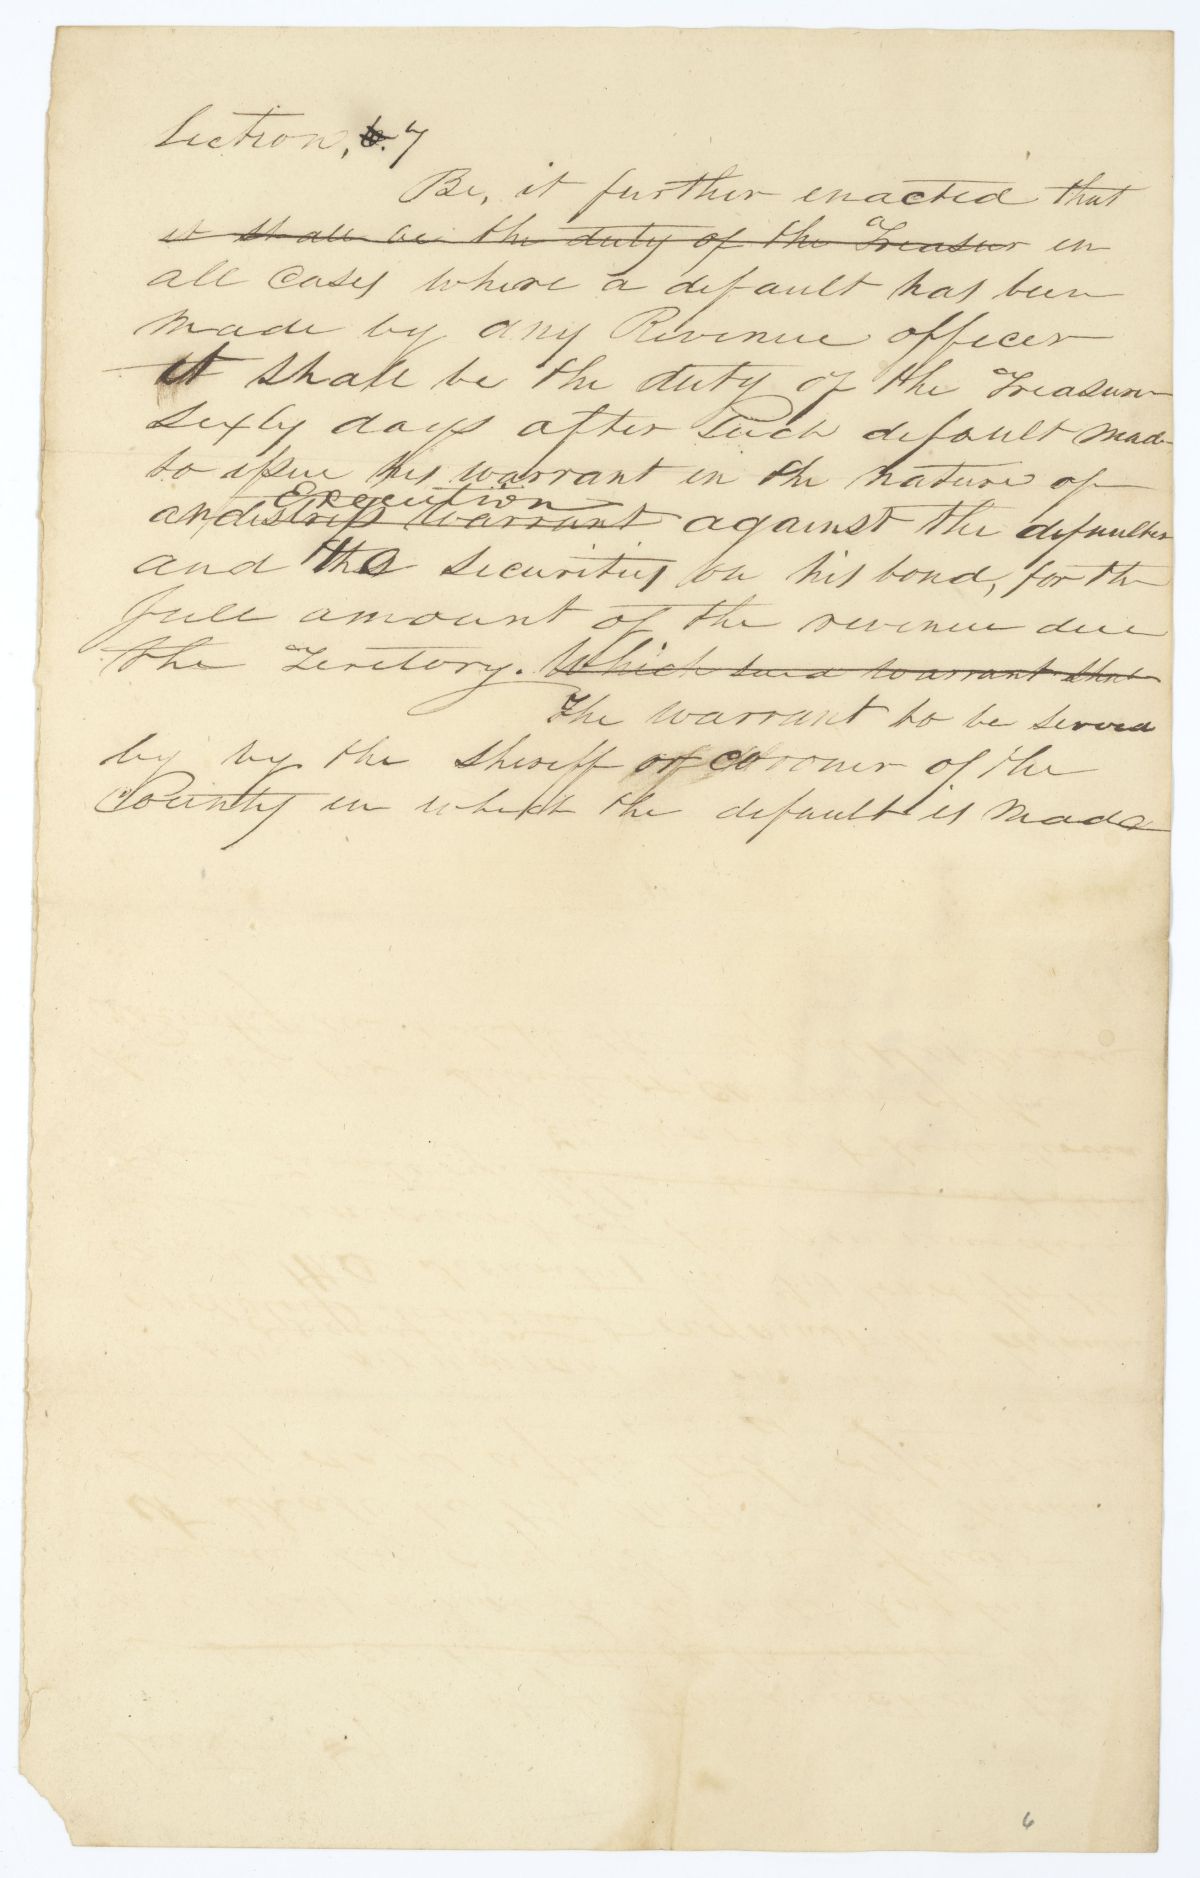 Section, 6. 7
Be, it further enacted that
it shall be the duty of the Treasur in
all cases where a default has been
made by any Revenue officer
it shall be the duty of the Treasurer
sixty days after such default made
to issue his warrant in the nature of
Execution
an distress warrant against the defaulter
and the securities on his bond, for the
full amount of the revenue due
the Teretory. Which said warrant shal
The warrant to be served
by by the sheriff or coroner of the
County in which the default is made
6